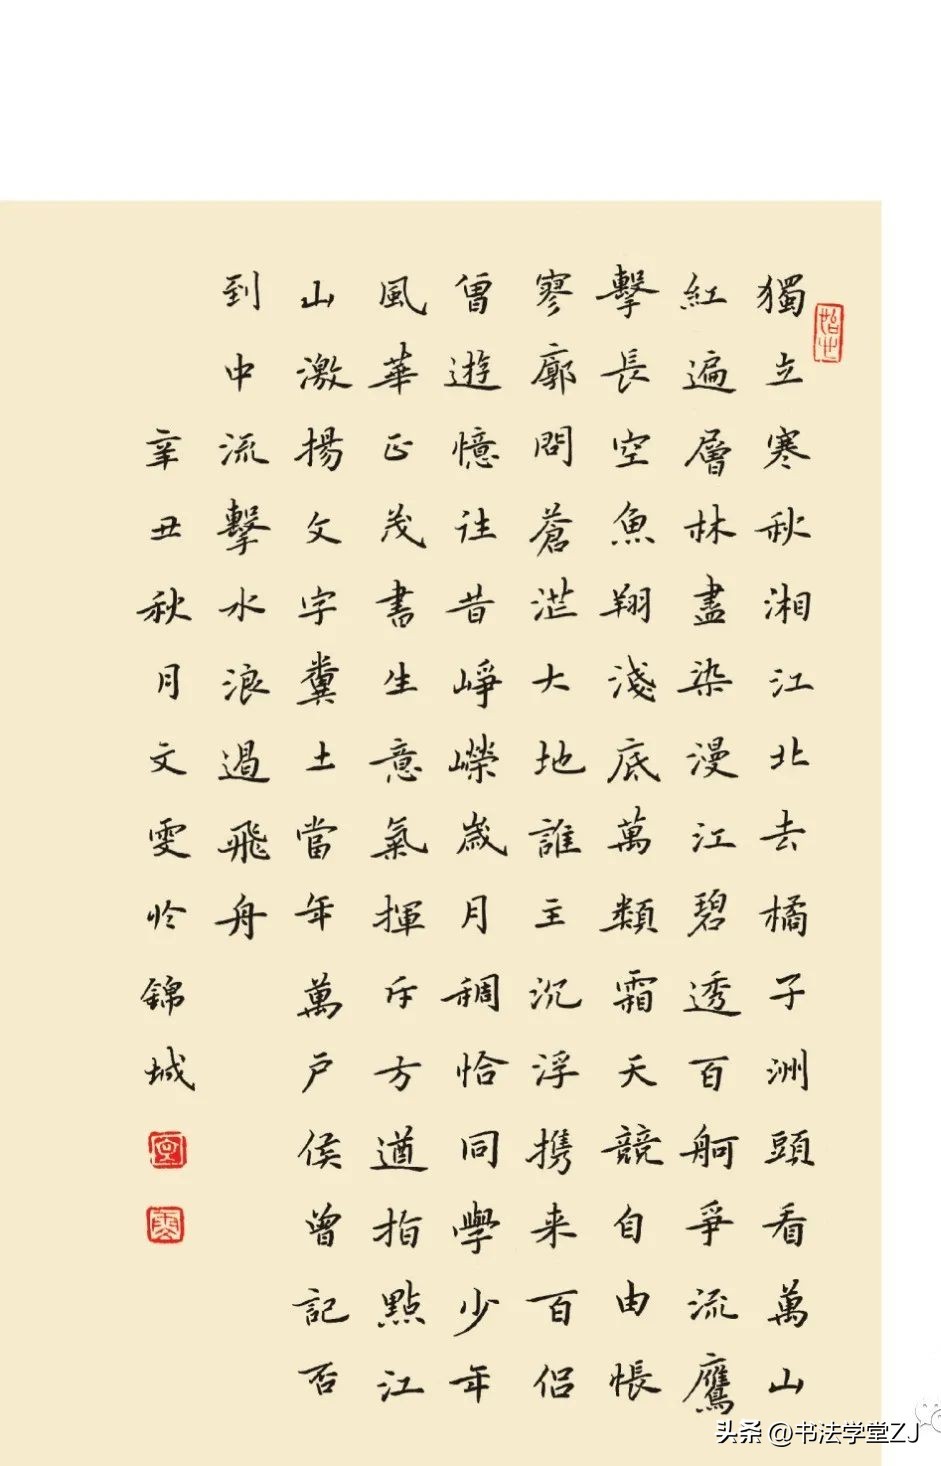 獨立寒秋湘江北去橘子洲頭看萬山
紅遍層林盡染漫江碧透百舸爭流鷹
擊長空魚翔淺底萬類霜天競自由悵
寥廓問蒼茫大地誰主沉浮携来百侣
曾遊憶往昔崢嶸歲月稠恰同學少年
風華正茂書生意氣揮斥方遒指點江
山激揚文字糞土當年萬户侯曾記否
到中流擊水浪遏飛舟
辛丑秋月文雯於錦城
头条 @书法学堂ZJ